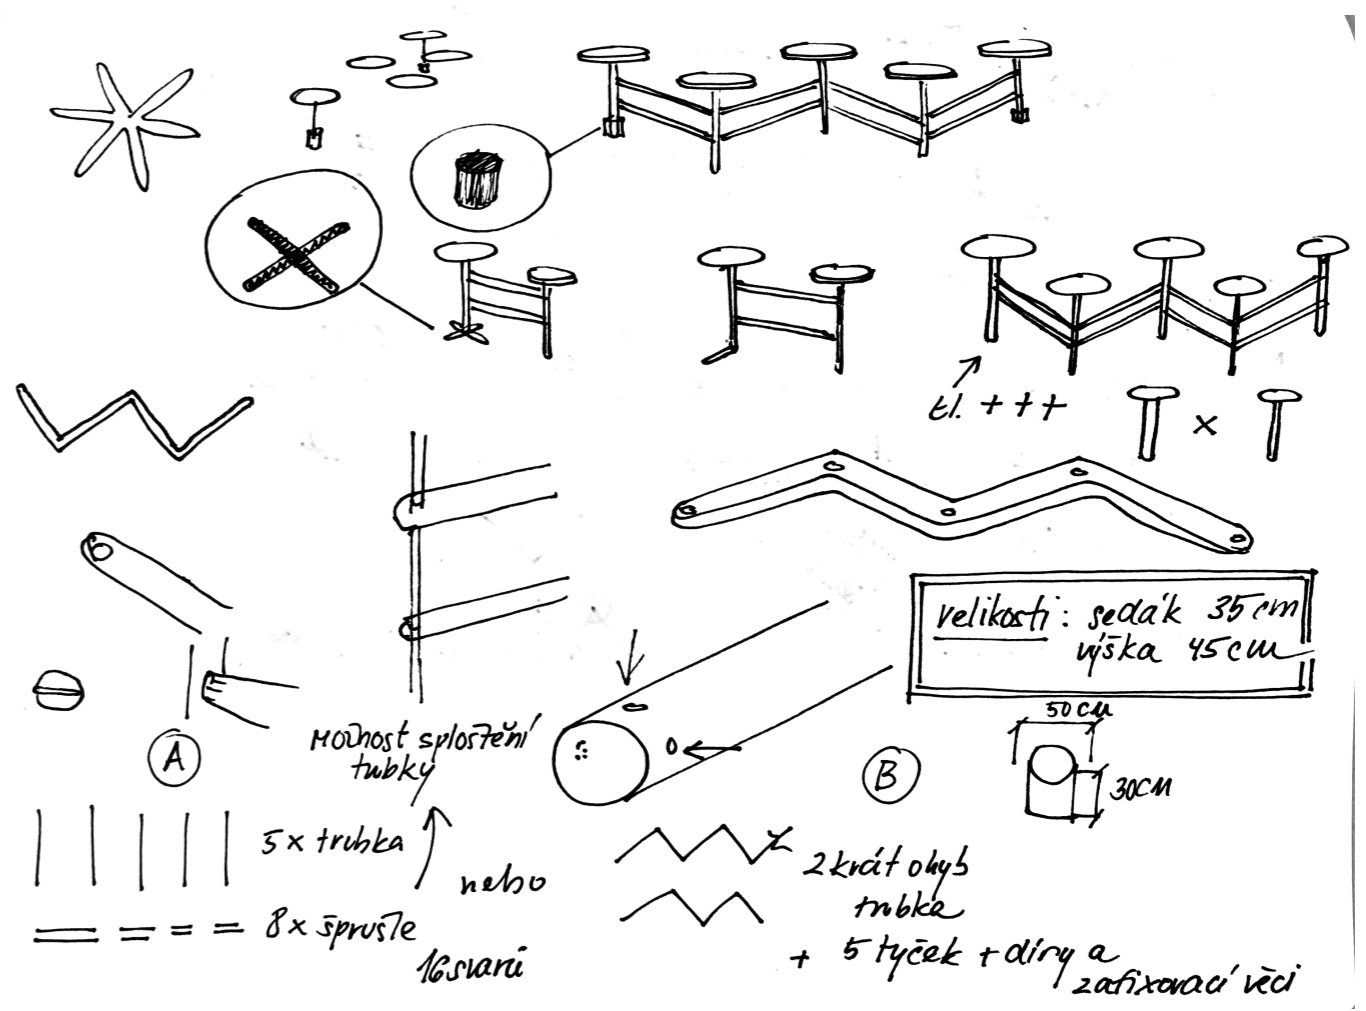 tl. + + +
x
velikosti: sedák 35 cm
výška 45 cm
50 CM
30 CM
Možnost sploštění
trubky
A
B
5 x trubka
nebo
8 x šprušle
16 svarů
2 krát ohyb
trubka
+ 5 tyček + díry a
zafixovací věci